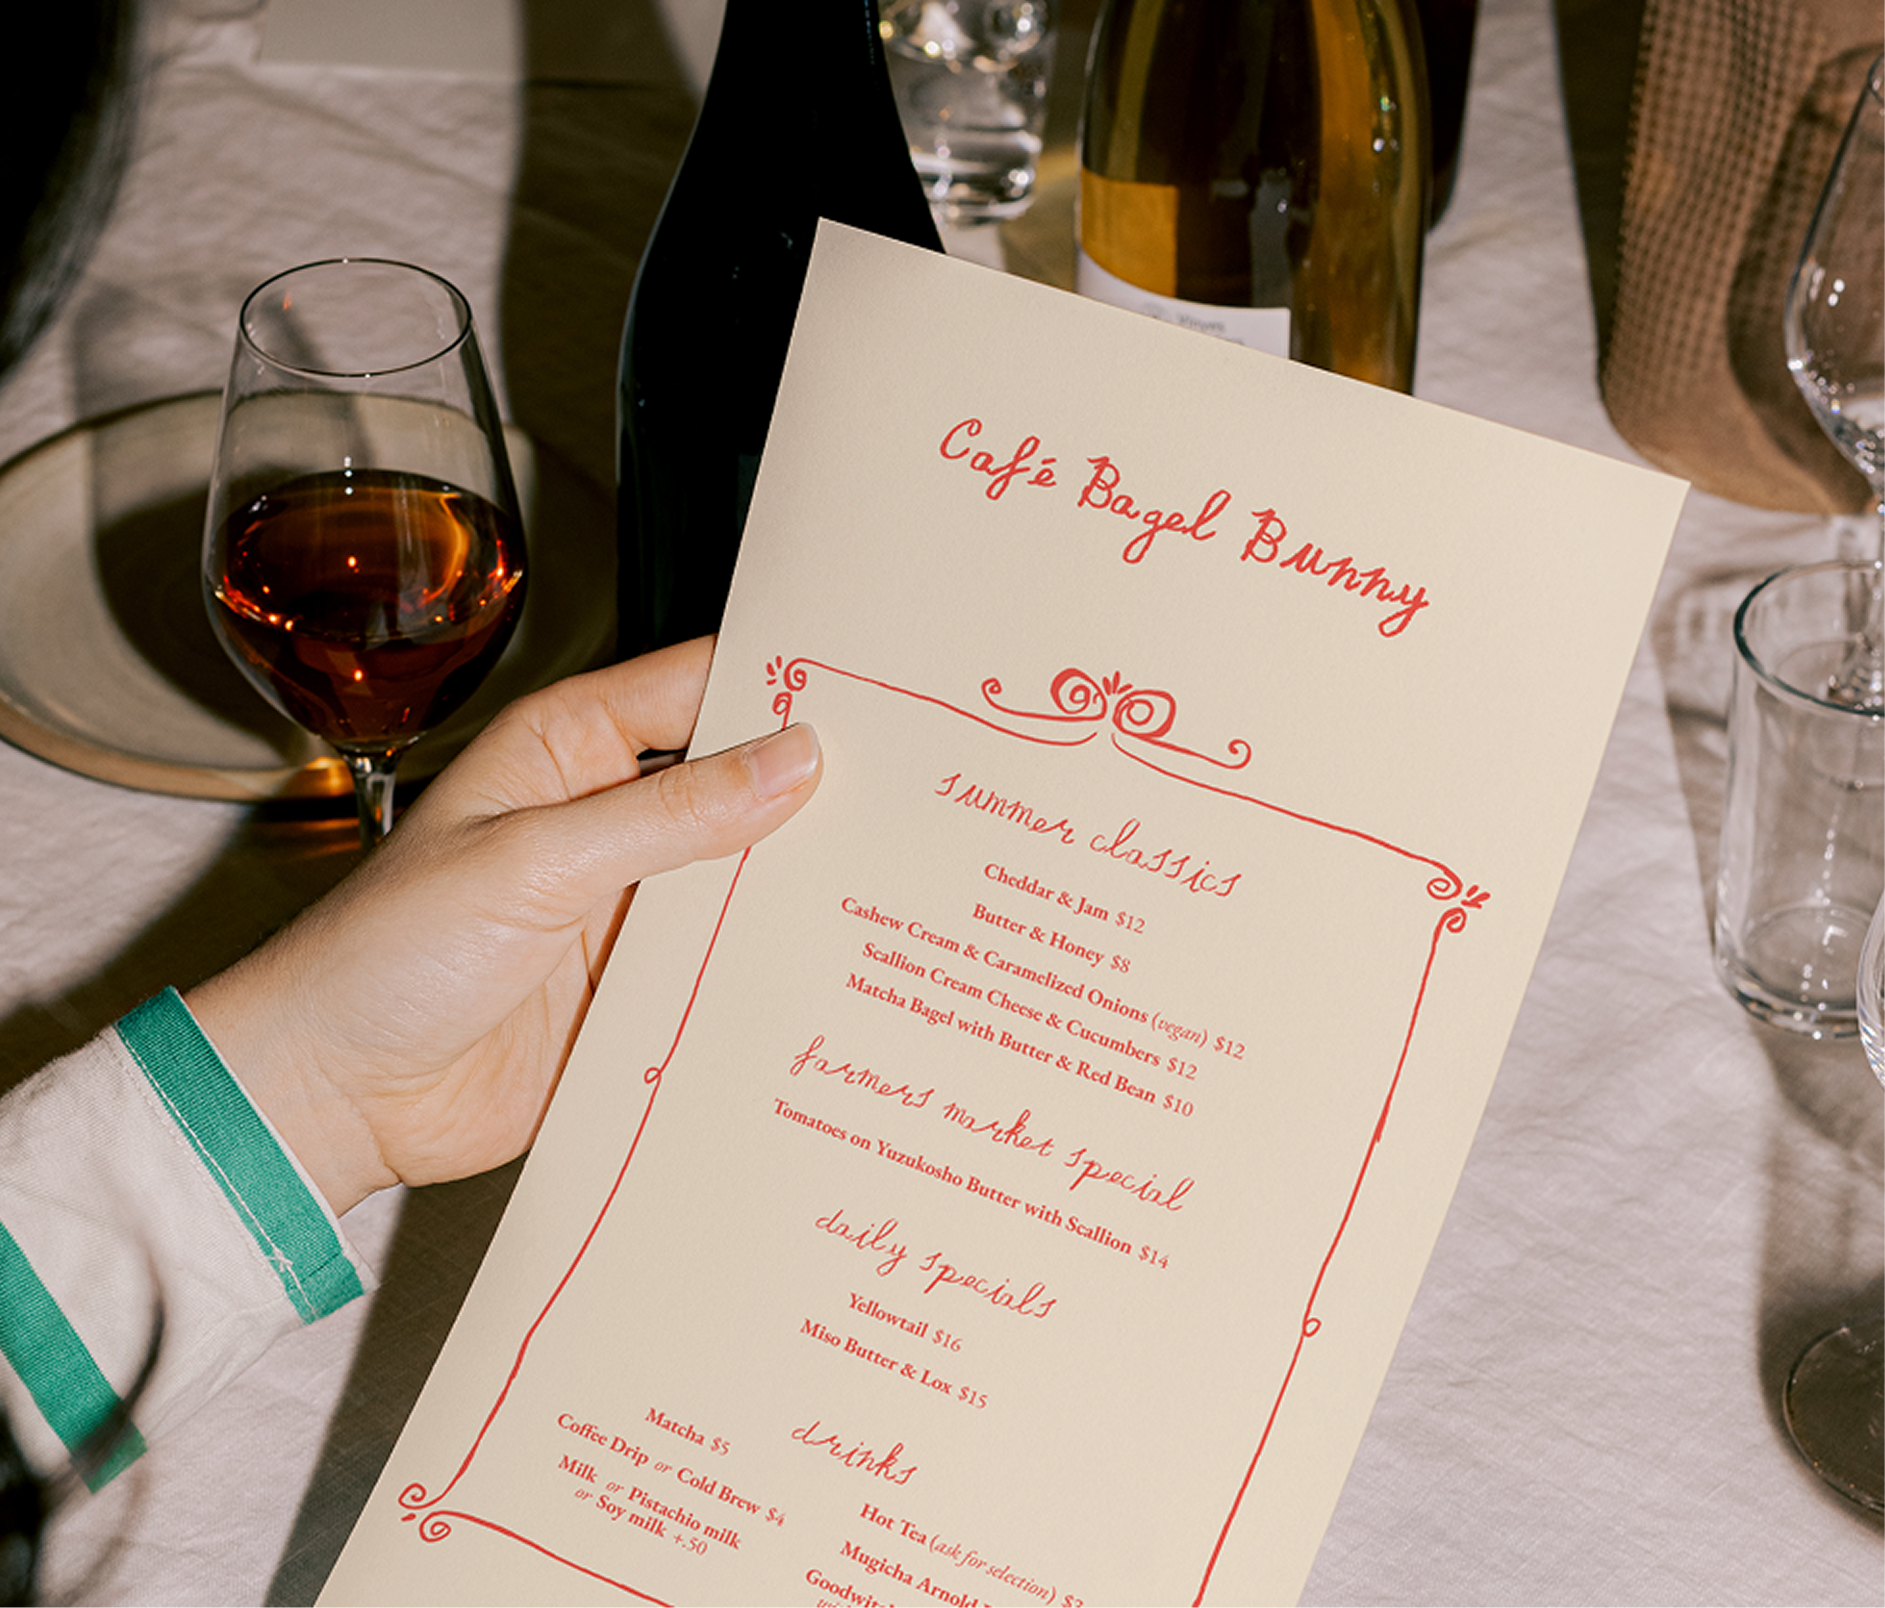 Café Bagel Bunny
summer classics
Cheddar & Jam $12
Butter & Honey $8
Cashew Cream & Caramelized Onions (vegan) $12
Scallion Cream Cheese & Cucumbers $12
Matcha Bagel with Butter & Red Bean $10
farmers market special
Tomatoes on Yuzukosho Butter with Scallion $14
daily specials
Yellowtail $16
Miso Butter & Lox $15
drinks
Matcha $5
Coffee Drip or Cold Brew $4
Milk or Pistachio milk
or Soy milk +.50
Hot Tea (ask for selection) $3
Mugicha Arnold